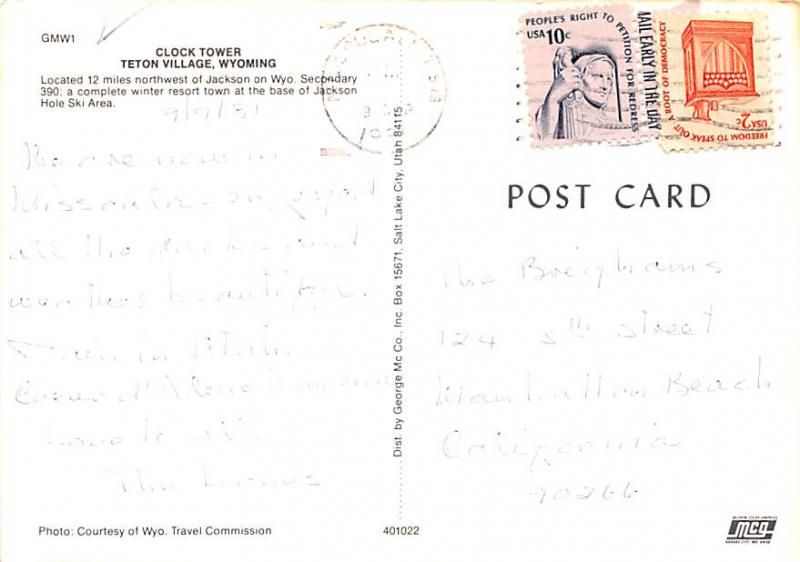 GMW1
CLOCK TOWER
TETON VILLAGE, WYOMING
Located 12 miles northwest of Jackson on Wyo. Secondary
390; a complete winter resort town at the base of Jackson
Hole Ski Area.
9/9/31
We are now in
Missoula - enjoyed
all the parks and
weather beautiful.
Rain in Utah.
Coeur d'Alene tomorrow
Love to all
The
Dist. by George Mc Co., Inc. Box 15671, Salt Lake City, Utah 84115
PEOPLE'S RIGHT TO PETITION FOR REDRESS
USA 10c
MAIL EARLY IN THE DAY
A ROOT OF DEMOCRACY
FREEDOM TO SPEAK OUT
USA 2c
POST CARD
The Brighams
124 5th street
Manhattan Beach
California
90266
Photo: Courtesy of Wyo. Travel Commission
401022
mcg